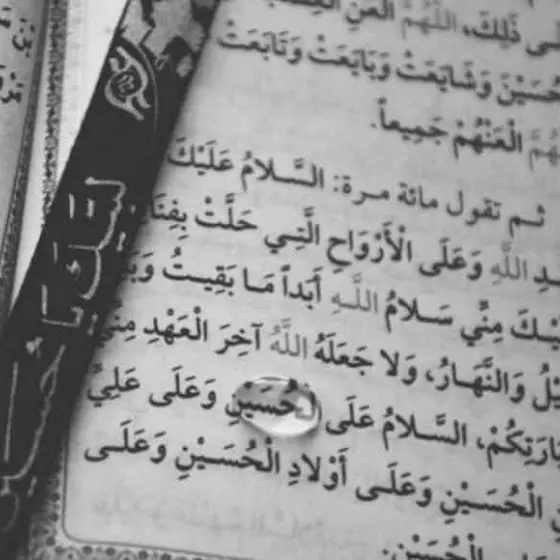 ـى ذَلِكَ، اللَّهُمَّ الْعَنِ
حُسَيْنَ وَشَايَعَتْ وَبَايَعَتْ وَتَابَعَتْ
ـهُمَّ الْعَنْهُمْ جَمِيعاً.
ثـم تقول مائة مـرة: السَّـلامُ عَلَيْكَ
ـدِ اللَّهِ وَعَلَى الْأَرْوَاحِ الَّتِـي حَلَّتْ بِفِنَا
ـيْـكَ مِنِّي سَـلامُ اللَّـهِ أَبَداً مَـا بَقِيـتُ وَبَـ
ـيْلُ وَالنَّهَـارُ، وَلا جَعَلَهُ اللَّهُ آخِرَ الْعَهْدِ مِنِّي
ـيَارَتِكُمْ، السَّـلامُ عَلَى الْحُسَيْنِ وَعَلَى عَلِيِّ
ـنِ الْحُسَيْنِ وَعَلَـى أَوْلادِ الْحُسَـيْنِ وَعَلَـى
الْحُسَيْنِ.
لبيك يا حسين